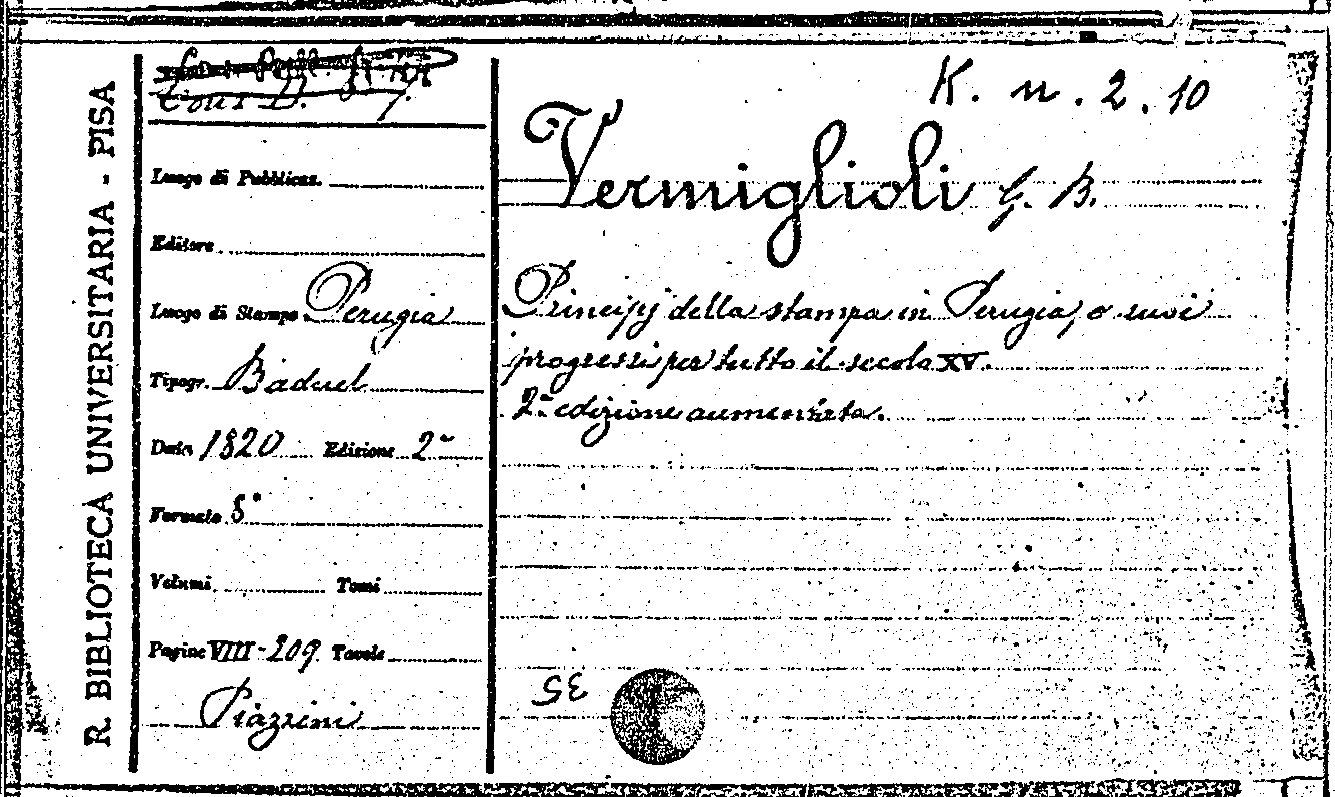 R. BIBLIOTECA UNIVERSITARIA - PISA
K. n. 2. 10
Luogo di Pubblicaz.
Editore
Luogo di Stampa Perugia
Tipogr. Baduel
Data 1820 Edizione 2ª
Formato 8°
Volumi Tomi
Pagine VIII-209 Tavole
Piazzini
Vermiglioli G. B.
Principj della stampa in Perugia, e suoi
progressi per tutto il secolo XV.
2ª edizione aumentata.